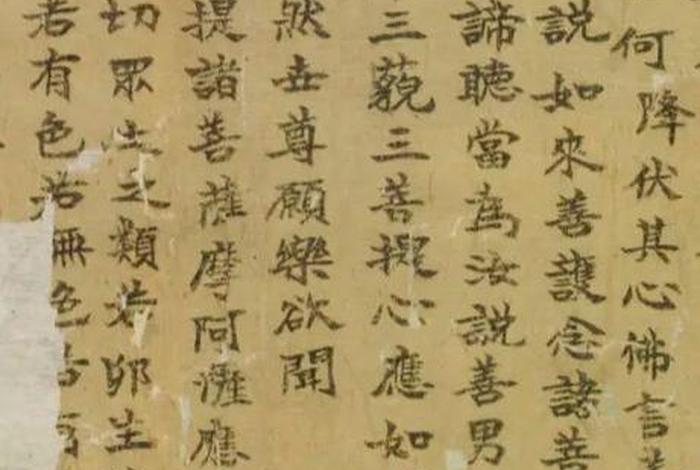 何降伏其心佛言
説如來善護念諸菩
諦聽當為汝説善男
三藐三菩提心應如
然世尊願樂欲聞
提諸菩薩摩阿薩應
切眾生之類若卵生
若有色若無色若